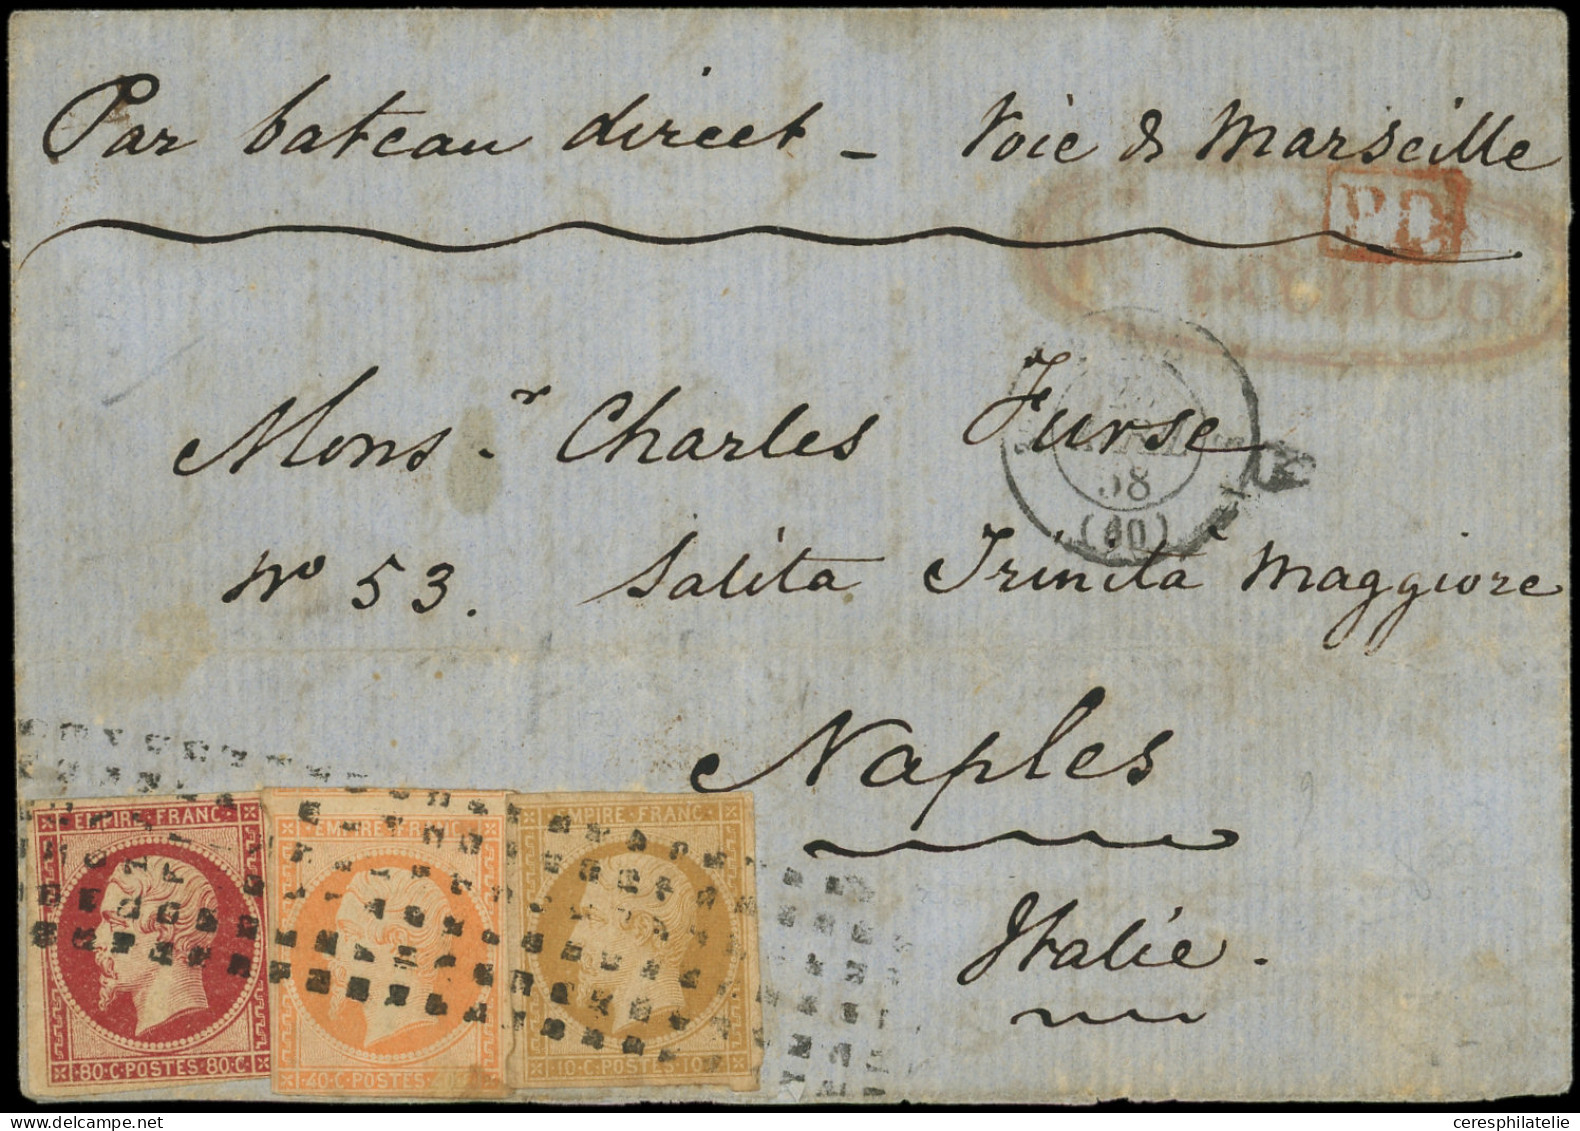 Par bateau direct - Voie de Marseille
P.D.
Franca
Mons.r Charles Furse
58
(60)
No 53. Salita Trinità Maggiore
Naples
Italie.
EMPIRE FRANC
80·C·POSTES·80·C
EMPIRE FRANC
40·C·POSTES·40
EMPIRE·FRANC
10·C·POSTES·10
ceresphilatelie.com